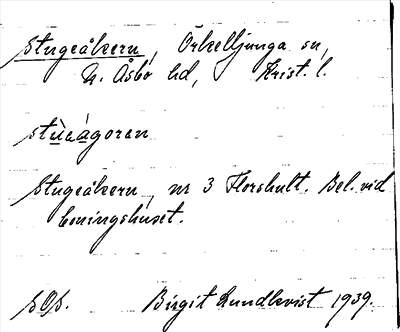 Stugeåkern, Örkelljunga sn,
N. Åsbo hd, Krist. l.
stùeágoren
Stugeåkern, nr 3 Florshult. Bel. vid
boningshuset.
Birgit Lundkvist 1939.